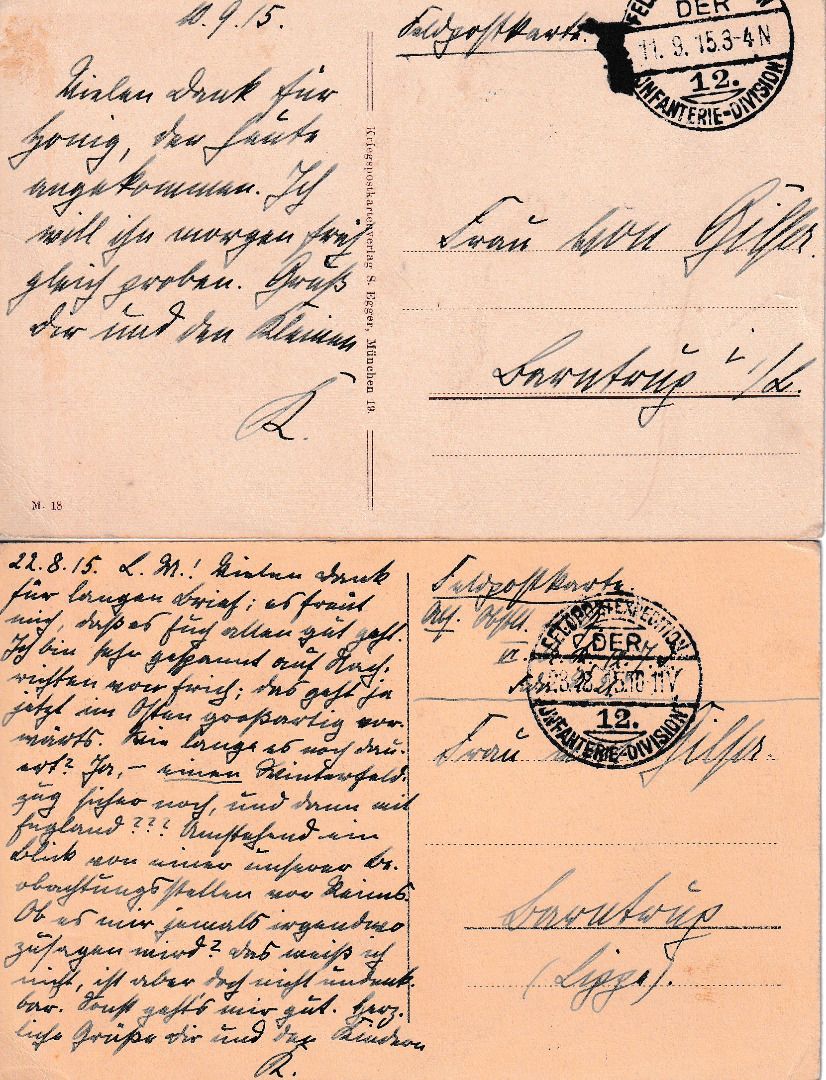 10.9.15.
Vielen Dank für
Honig, der heute
angekommen. Ich
will ihn morgen früh
gleich proben. Gruß
Dir und den Kleinen
K.
M. 18
Kriegspostkartenverlag S. Egger, München 13.
Feldpostkarte.
DER
11. 9. 15. 3-4 N
12.
INFANTERIE-DIVISION
Frau von
Barntrup i/L.
22.8.15. L. M.! Vielen Dank
für langen Brief; es freut
mich, daß es Euch allen gut geht.
Ich bin sehr gespannt auf Nach-
richten von Erich; das geht ja
jetzt im Osten großartig vor-
wärts. Wie lange es noch dau-
ert? Ja, – einen Winterfeld-
zug sicher noch, und dann mit
England??? Umstehend ein
Blick von einer unserer Be-
obachtungsstellen vor Reims.
Ob es mir jemals irgendwo
zusagen wird? Das weiß ich
nicht, ist aber doch nicht undenk-
bar. Sonst geht's mir gut. Herz-
liche Grüße Dir und den Kindern
K.
Feldpostkarte.
FELDPOSTEXPEDITION
DER
12.
INFANTERIE-DIVISION
Frau
Barntrup
(Lippe).